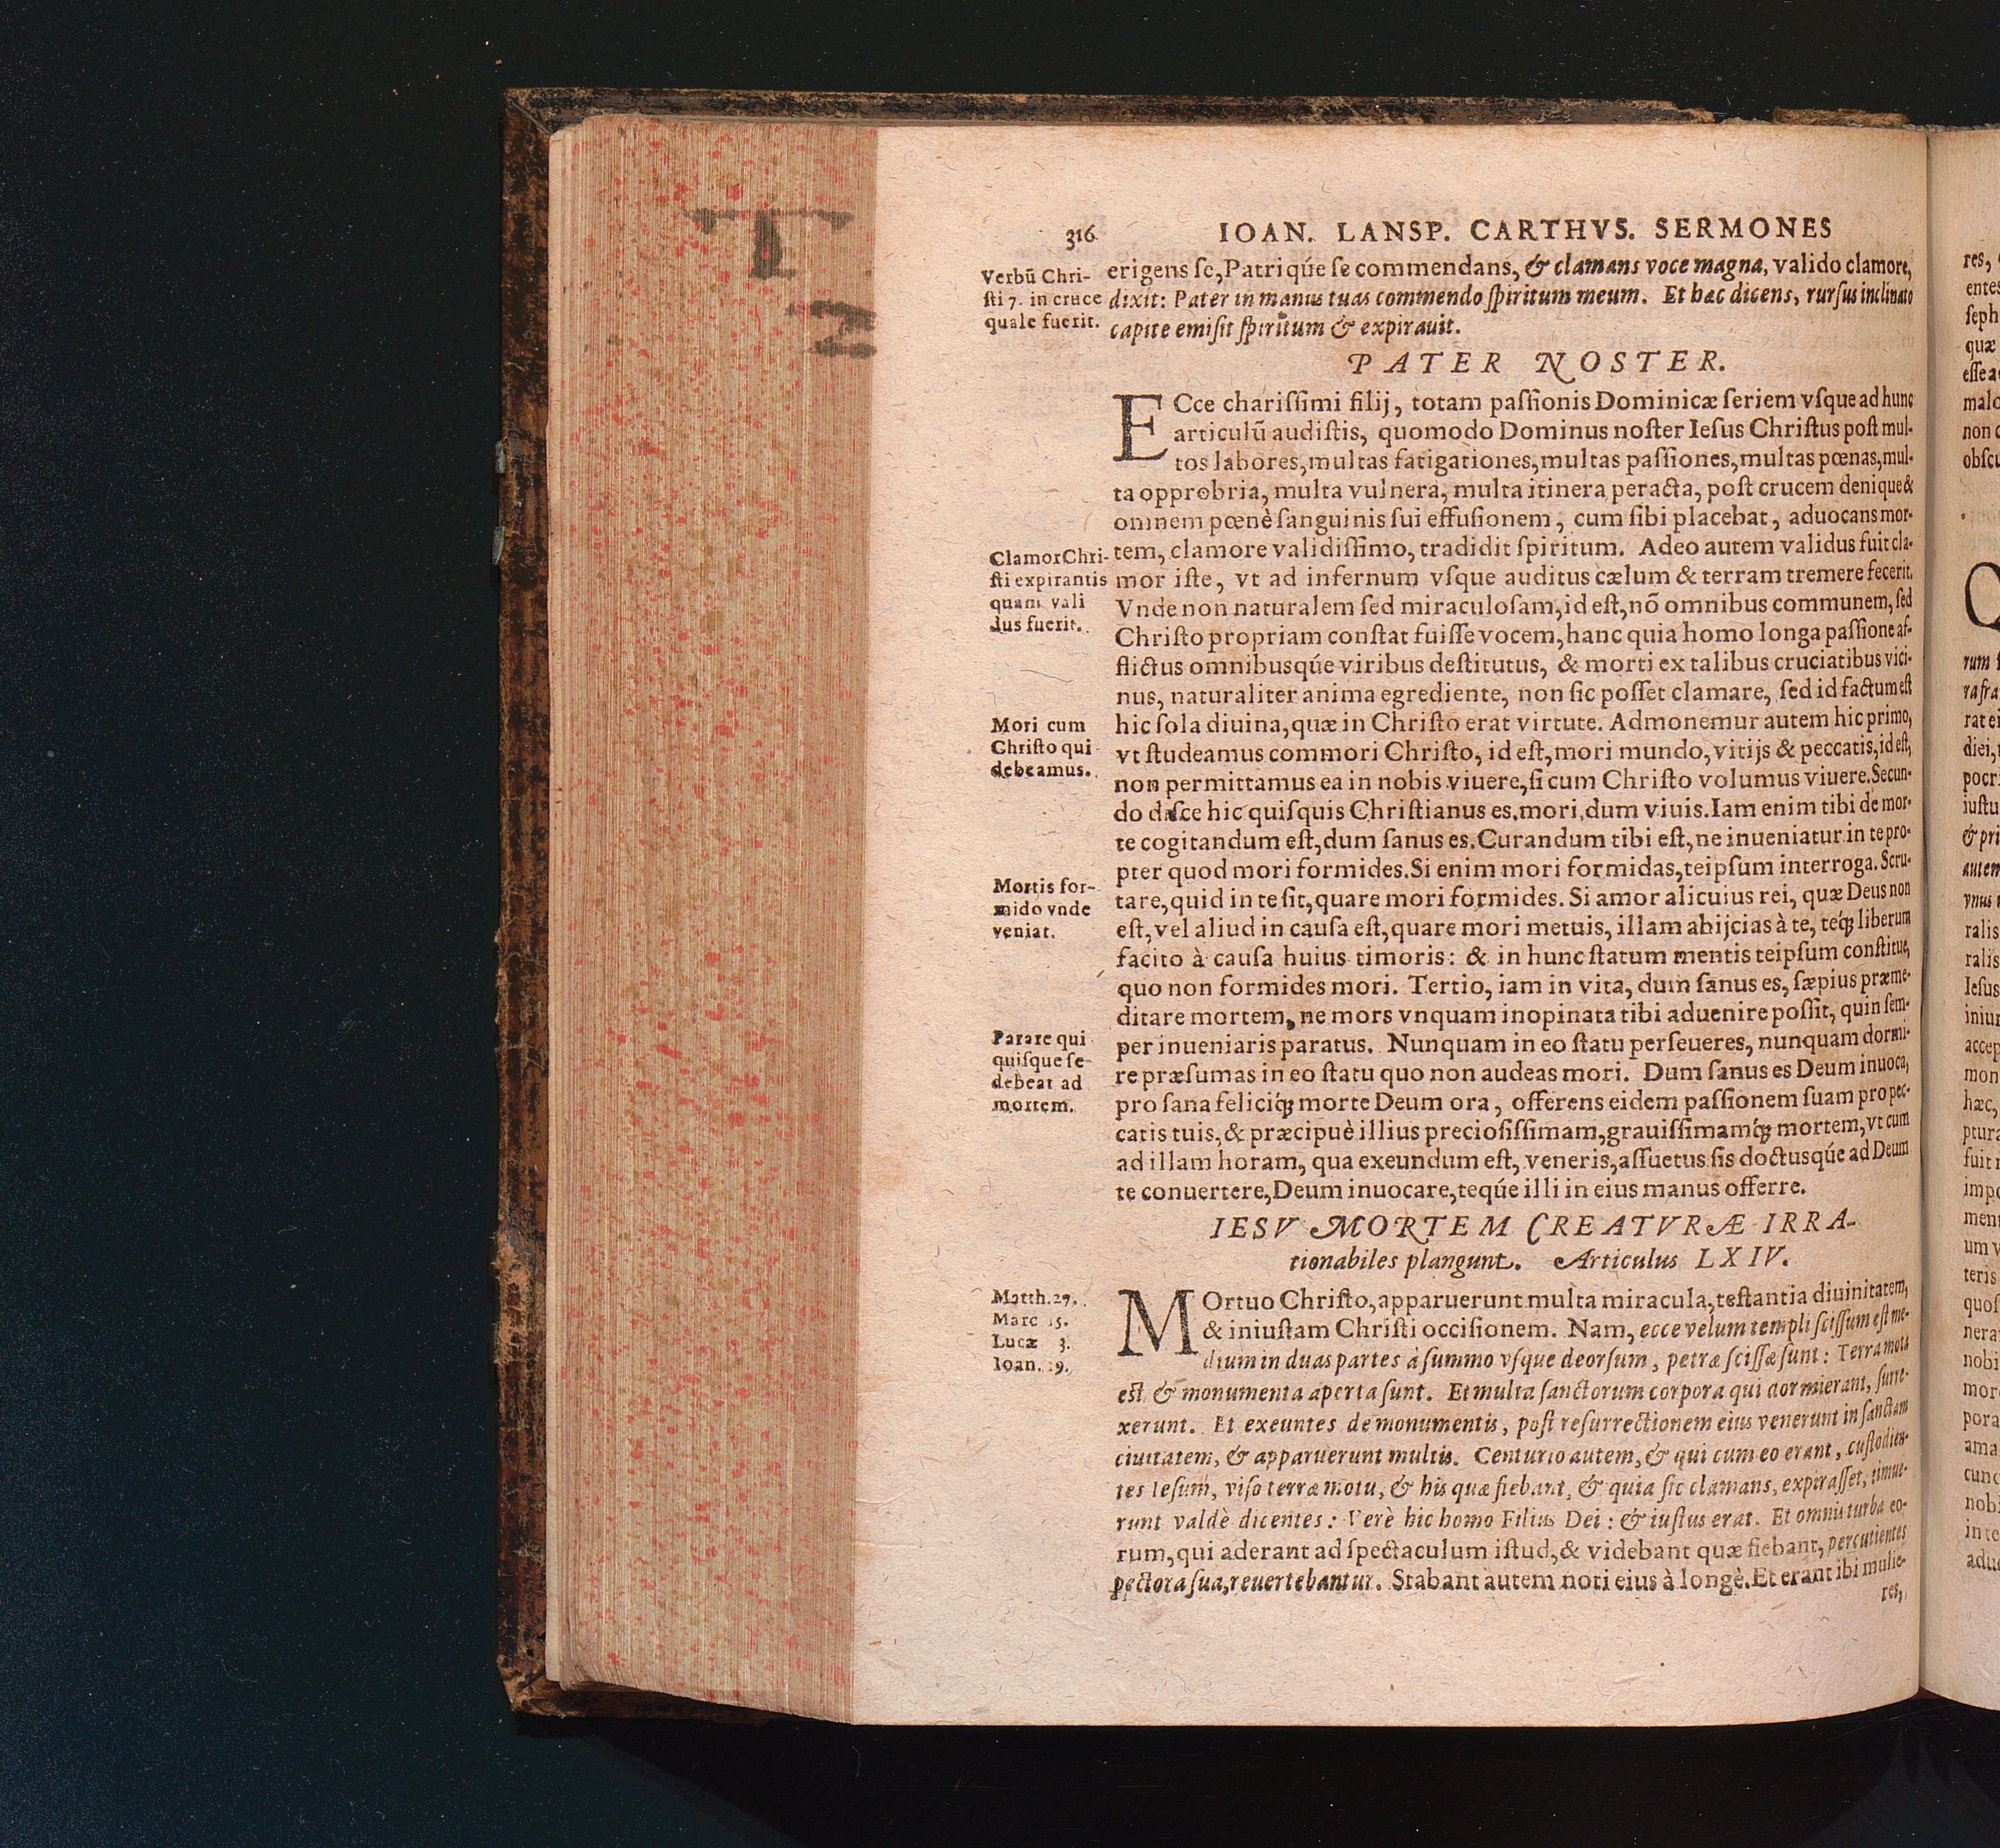 316 IOAN. LANSP. CARTHVS. SERMONES
Verbū Chri-
sti 7. in cruce
quale fuerit.
erigens se, Patriq́ue se commendans, & clamans voce magna, valido clamore,
dixit: Pater in manus tuas commendo spiritum meum. Et hæc dicens, rursus inclinato
capite emisit spiritum & expirauit.
PATER NOSTER.
ECce charissimi filij, totam passionis Dominicæ seriem vsque ad hunc
articulū audistis, quomodo Dominus noster Iesus Christus post mul-
tos labores, multas fatigationes, multas passiones, multas pœnas, mul-
ta opprobria, multa vulnera, multa itinera peracta, post crucem denique &
omnem pœnè sanguinis sui effusionem, cum sibi placebat, aduocans mor-
Clamor Chri-
sti expirantis
quam vali
dus fuerit.
tem, clamore validissimo, tradidit spiritum. Adeo autem validus fuit cla-
mor iste, vt ad infernum vsque auditus cælum & terram tremere fecerit.
Vnde non naturalem sed miraculosam, id est, nō omnibus communem, sed
Christo propriam constat fuisse vocem, hanc quia homo longa passione af-
flictus omnibusq́ue viribus destitutus, & morti ex talibus cruciatibus vici-
nus, naturaliter anima egrediente, non sic posset clamare, sed id factum est
Mori cum
Christo qui
debeamus.
hic sola diuina, quæ in Christo erat virtute. Admonemur autem hic primo,
vt studeamus commori Christo, id est, mori mundo, vitijs & peccatis, id est,
non permittamus ea in nobis viuere, si cum Christo volumus viuere. Secun-
do disce hic quisquis Christianus es, mori, dum viuis. Iam enim tibi de mor-
te cogitandum est, dum sanus es. Curandum tibi est, ne inueniatur in te pro-
pter quod mori formides. Si enim mori formidas, teipsum interroga. Scru-
Mortis for-
mido vnde
veniat.
tare, quid in te sit, quare mori formides. Si amor alicuius rei, quæ Deus non
est, vel aliud in causa est, quare mori metuis, illam abijcias à te, teq́; liberum
facito à causa huius timoris: & in hunc statum mentis teipsum constitue,
quo non formides mori. Tertio, iam in vita, dum sanus es, sæpius præme-
ditare mortem, ne mors vnquam inopinata tibi aduenire possit, quin sem-
Parare qui
quisque se
debeat ad
mortem.
per inueniaris paratus. Nunquam in eo statu perseueres, nunquam dormi-
re præsumas in eo statu quo non audeas mori. Dum sanus es Deum inuoca,
pro sana feliciq́; morte Deum ora, offerens eidem passionem suam pro pec-
catis tuis, & præcipuè illius preciosissimam, grauissimamq́; mortem, vt cum
ad illam horam, qua exeundum est, veneris, assuetus sis doctusq́ue ad Deum
te conuertere, Deum inuocare, teq́ue illi in eius manus offerre.
IESV MORTEM CREATVRÆ IRRA-
tionabiles plangunt. Articulus LXIV.
Matth. 27.
Marc 15.
Lucæ 3.
Ioan. 19.
MOrtuo Christo, apparuerunt multa miracula, testantia diuinitatem,
& iniustam Christi occisionem. Nam, ecce velum templi scissum est me-
dium in duas partes à summo vsque deorsum, petræ scissæ sunt: Terra mota
est & monumenta aperta sunt. Et multa sanctorum corpora qui dormierant, surre-
xerunt. Et exeuntes de monumentis, post resurrectionem eius venerunt in sanctam
ciuitatem, & apparuerunt multis. Centurio autem, & qui cum eo erant, custodien-
tes Iesum, viso terræ motu, & his quæ fiebant, & quia sic clamans, expirasset, timue-
runt valdè dicentes: Verè hic homo Filius Dei: & iustus erat. Et omnis turba eo-
rum, qui aderant ad spectaculum istud, & videbant quæ fiebant, percutientes
pectora sua, reuertebantur. Stabant autem noti eius à longè. Et erant ibi mulie-
res,